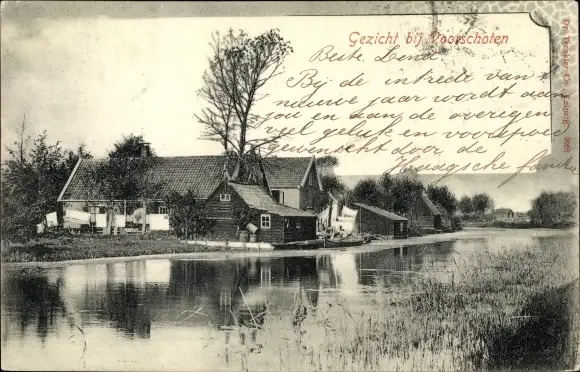 Gezicht bij Voorschoten
Beste Lena
Bij de intrede van 't
nieuwe jaar wordt aan
jou en aan de overigen
veel geluk en voorspoed
gewenscht door de
Haagsche familie
Dr. Trenkler Co., Leipzig.